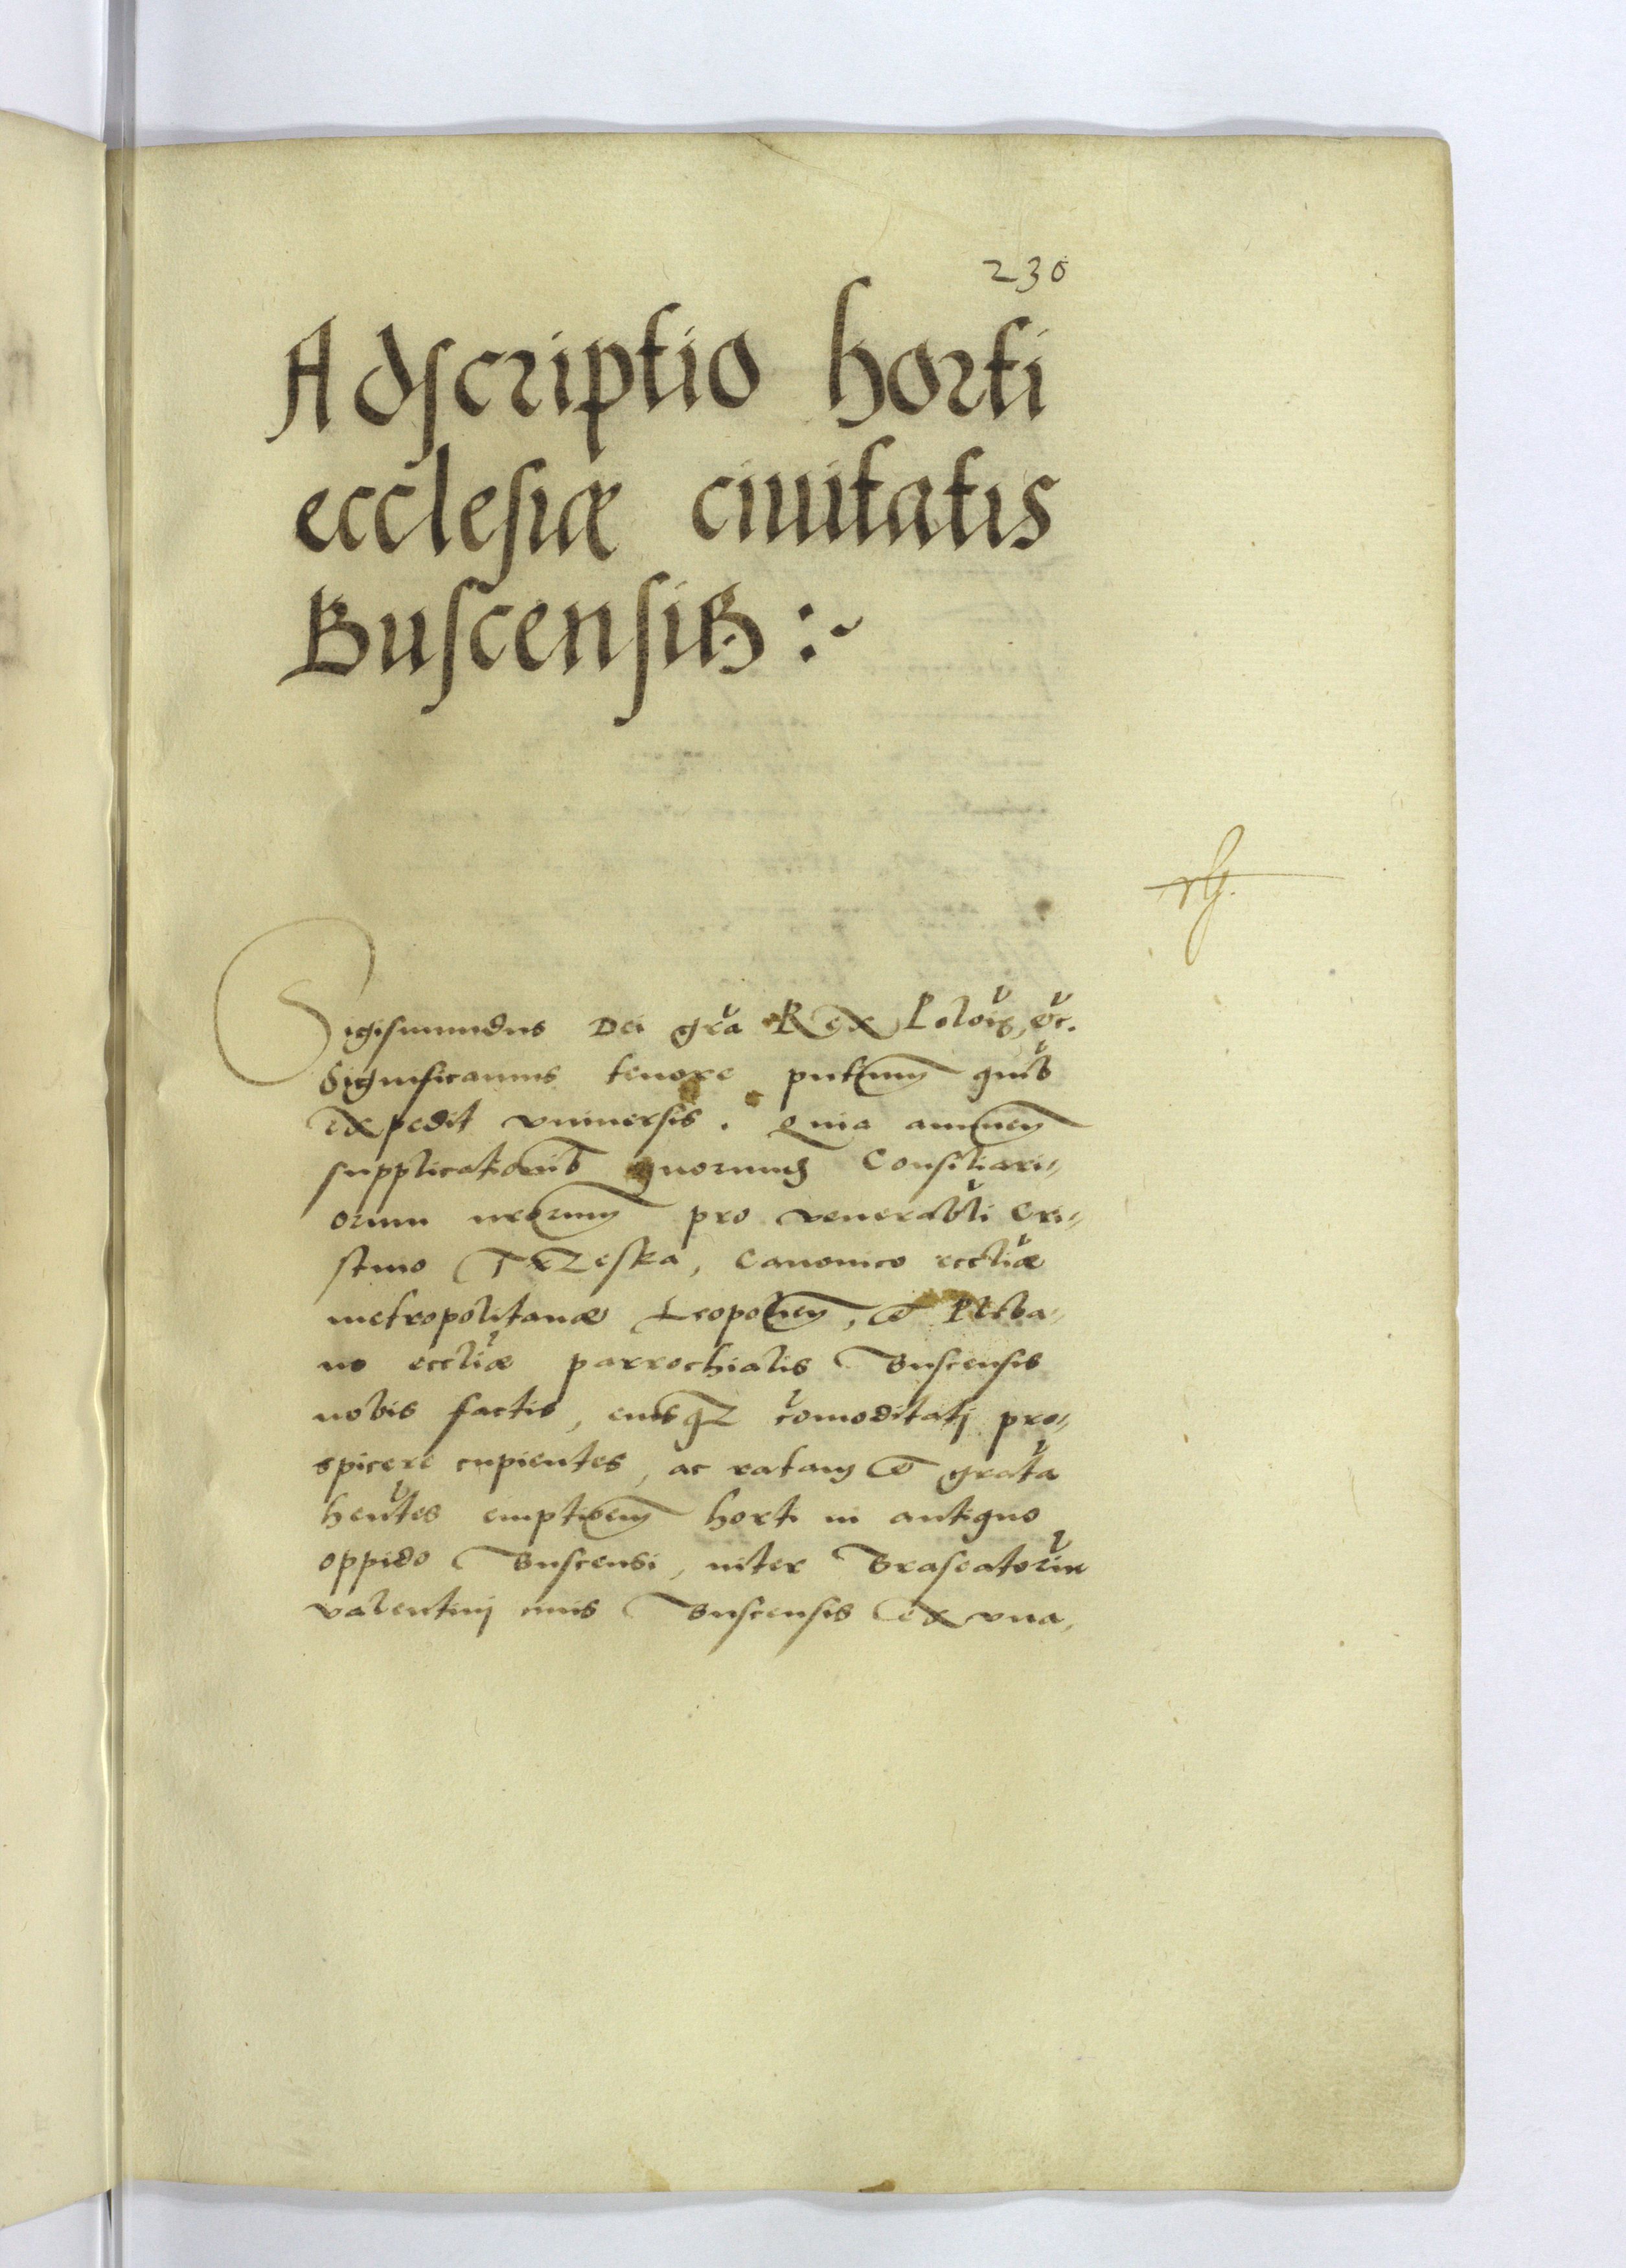 230
Adscriptio horti
ecclesiæ ciuitatis
Buscensis :~
Sigismundus Dei gra Rex Polo&c.
Significamus tenore pntium quib
expedit vniuersis. Quia annuen
supplicationib quorumd Consiliari„
orum nrorum pro venerabli Cri„
stino Trzeska, Canonico eccliæ
metropolitanæ Leopolien, & Pleba„
no eccliæ parrochialis Buscensis
nobis factis, eiusqz comoditatj pro„
spicere cupientes, ac ratam & grata
hentes emptioem horti in antiquo
oppido Buscensi, inter Braseatoriu
valentinj ciuis Buscensis ex vna,